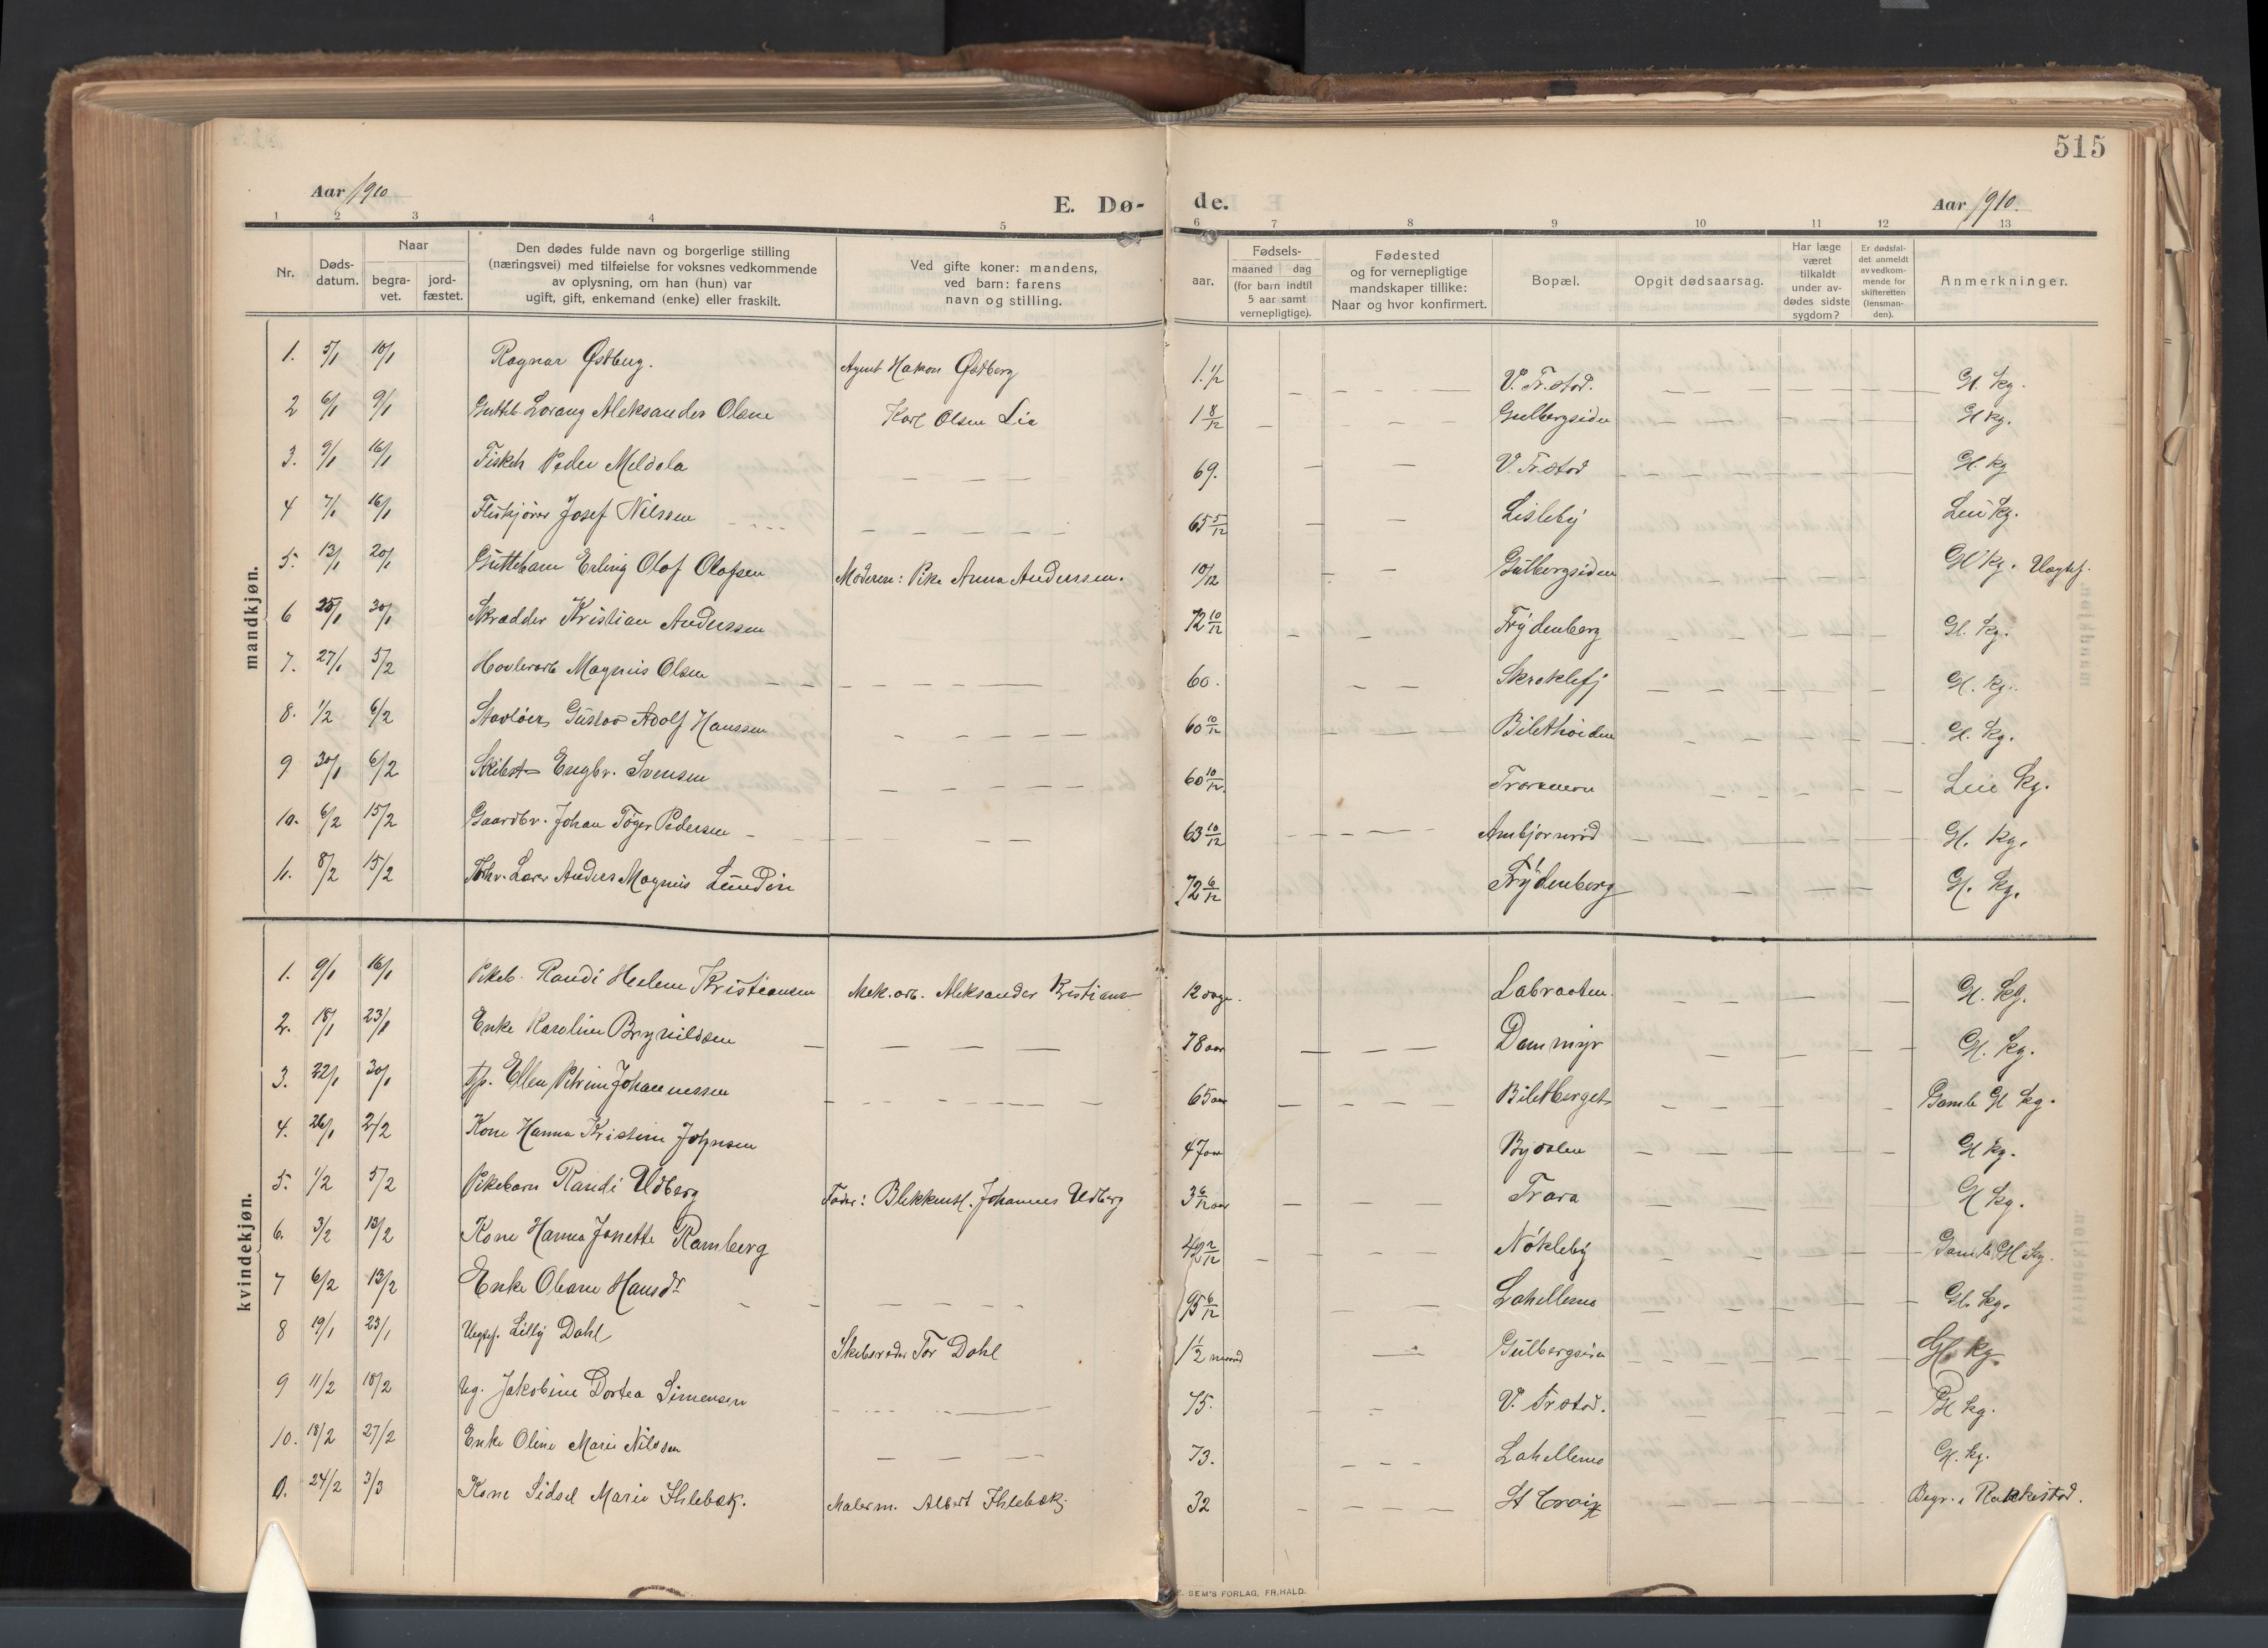 515
Aar 1910
E. Dø-
de.
Aar 1910.
1 2 3 4 5 6 7 8 9 10 11 12 13
Nr.
Døds-
datum.
Naar
begra-
vet.
jord-
fæstet.
Den dødes fulde navn og borgerlige stilling
(næringsvei) med tilføielse for voksnes vedkommende
av oplysning, om han (hun) var
ugift, gift, enkemand (enke) eller fraskilt.
Ved gifte koner: mandens,
ved barn: farens
navn og stilling.
aar.
Fødsels-
maaned dag
(for barn indtil
5 aar samt
vernepligtige).
Fødested
og for vernepligtige
mandskaper tillike:
Naar og hvor konfirmert.
Bopæl.
Opgit dødsaarsag.
Har læge
været
tilkaldt
under av-
dødes sidste
sygdom?
Er dødsfal-
det anmeldt
av vedkom-
mende for
skifteretten
(lensman-
den).
Anmerkninger.
mandkjøn.
1. 5/1 10/1 Ragnar Østberg. Agent Hakon Østberg 1.1/2 V. Fr.stad. Gl. kg.
2 6/1 9/1 Gutteb. Lorang Aleksander Olsen Karl Olsen Lie 1 8/12 Gulbergsiden Gl kg.
3. 9/1 16/1 Peder Meldola 69. V. Fr.stad Gl. kg
4 7/1 16/1 Josef Nilssen 65 5/12 Lisleby Lei kg.
5. 13/1 20/1 Guttebarn Erling Olaf Olafsen Moderen: Pike Anna Anderssen. 10/12 Gulbergsiden Gl kg.
6 25/1 30/1 Skrædder Kristian Anderssen 72 10/12 Frydenberg Gl. kg.
7. 27/1 5/2 Høvlerarb Magnus Olsen 60. Gl. kg.
8. 1/2 6/2 Gustav Adolf Hanssen 60 10/12 Gl. kg.
9 30/1 6/2 Engbr. Svensen 60 10/12. Lei kg.
10. 6/2 15/2 Gaardbr. Johan Tøger Pedersen 63 10/12 Ambjørnrød Gl. kg.
11. 8/2 15/2 Lærer Anders Magnus Lundin 72 6/12 Frydenberg Gl. kg.
kvindekjøn.
1. 9/1 16/1 Pikeb. Randi Helene Kristiansen Mek. arb. Aleksander Kristians 12 dage. Labraaten. Gl. kg.
2. 18/1 23/1 Enke Karoline Brynildsen 78 aar Dammyr Gl. kg.
3. 22/1 30/1 Ellen Petrine Johannessen 65 aar Biletberget Gamle Gl kg.
4. 26/1 2/2 Kone Hanna Kristine Johnsen 47 aar Bydalen Gl kg.
5. 1/2 5/2 Pikebarn Randi Udberg Fader: Blikkensl. Johannes Udberg 3 6/12 aar Trara Gl kg.
6. 3/2 13/2 Kone Hanna Jonette Ramberg 42 2/12 Nøkleby Gamle Gl kg.
7 6/2 13/2 Enke Oleane Hansdr 95 6/12 Lahellemo Gl. kg.
8 19/1 23/1 Lilly Dahl Skibsreder Tor Dahl 1 1/2 maaned Gl. kg.
9 11/2 18/2 Ug. Jakobine Dortea Simensen 75. V. Fr.stad. Gl kg.
10. 18/2 27/2 Enke Oline Marie Nilssen 73. Lahellemo Gl. kg.
24/2 3/3 Kone Sidsel Marie Ihlebæk. Malerm. Albert Ihlebæk 32 St Croix Begr. i Rakkestad.
E. SEM'S FORLAG, FR.HALD.